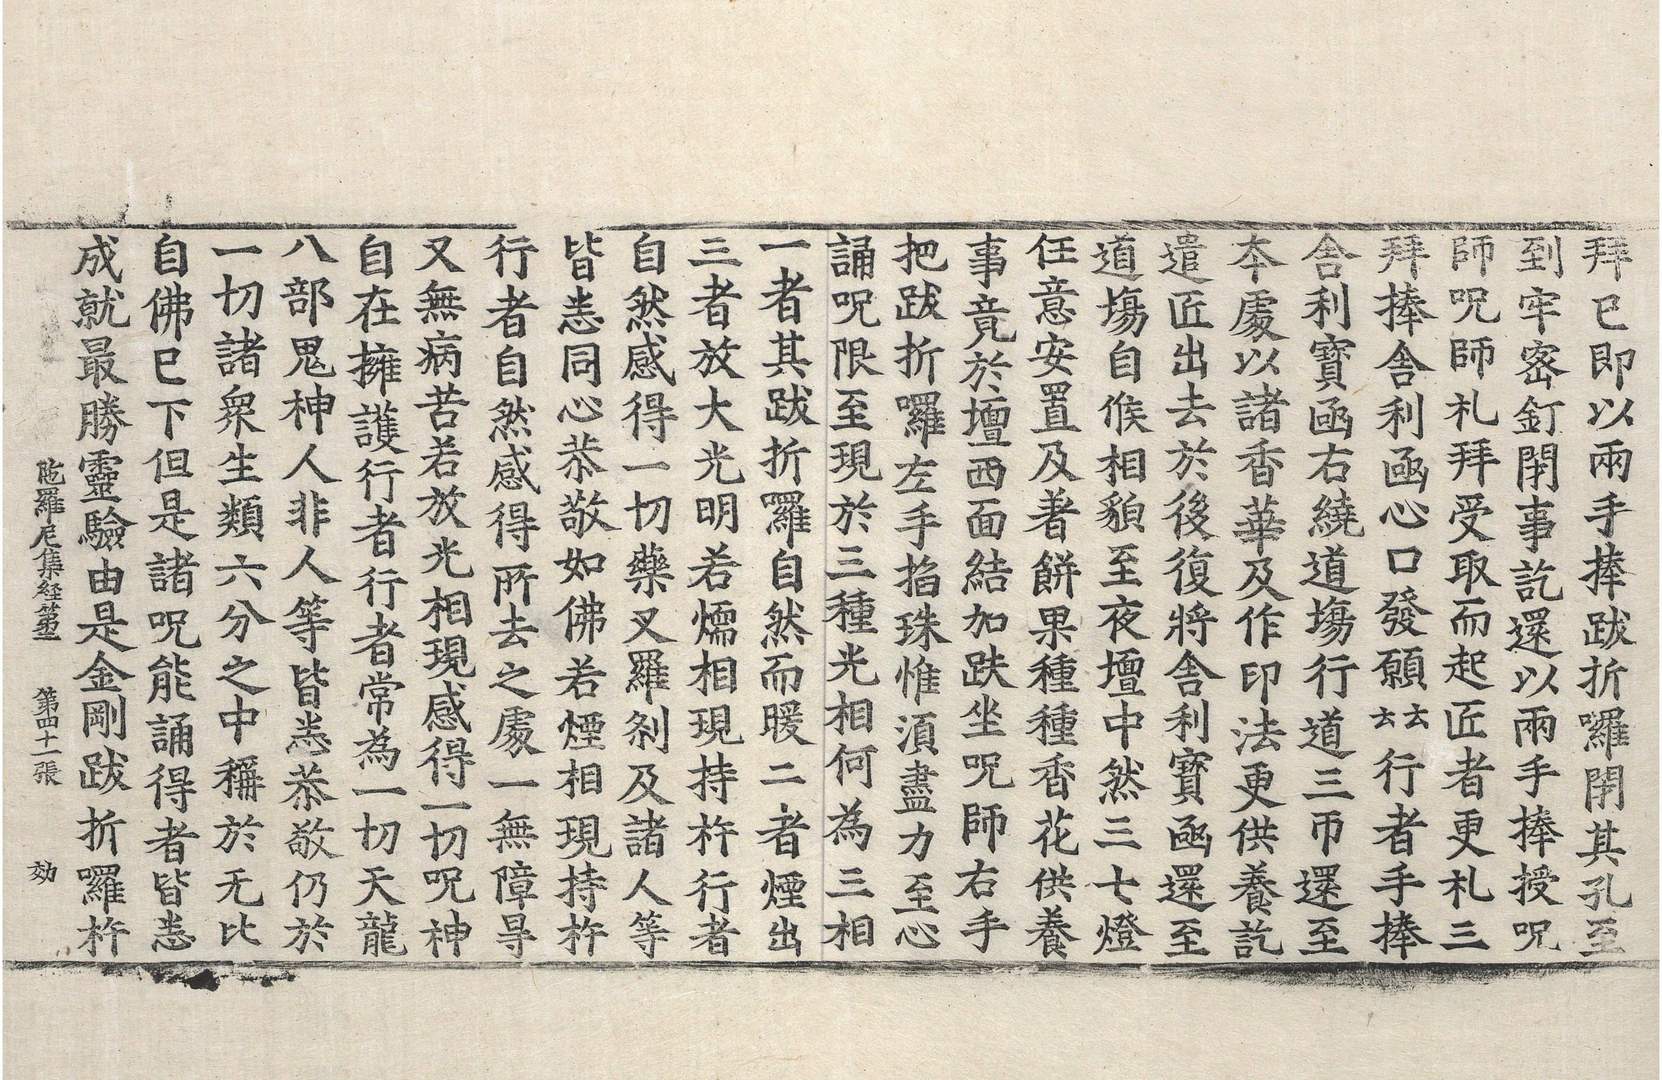 拜已即以兩手捧跋折囉閇其孔至
到牢密釘閇事訖還以兩手捧授呪
師呪師礼拜受取而起匠者更礼三
拜捧舎利凾心口發願云云行者手捧
舎利寶凾右繞道塲行道三帀還至
夲處以諸香華及作印法更供養訖
遣匠出去於後復將舎利寶凾還至
道塲自俟相貌至夜壇中然三七燈
任意安置及著餅果種種香花供養
事竟於壇西面結加趺坐呪師右手
把跋折囉左手掐珠惟湏盡力至心
誦呪限至現於三種光相何為三相
一者其跋折囉自然而暖二者煙出
三者放大光明若煗相現持杵行者
自然感得一切藥叉羅剎及諸人等
皆悉同心恭敬如佛若煙相現持杵
行者自然感得所去之處一無障㝵
又無病苦若放光相現感得一切呪神
自在擁護行者行者常為一切天龍
八部鬼神人非人等皆悉恭敬仍於
一切諸衆生類六分之中稱於无比
自佛已下但是諸呪能誦得者皆悉
成就最勝靈驗由是金剛跋折囉杵
陁羅尼集経第二 第四十一張 効